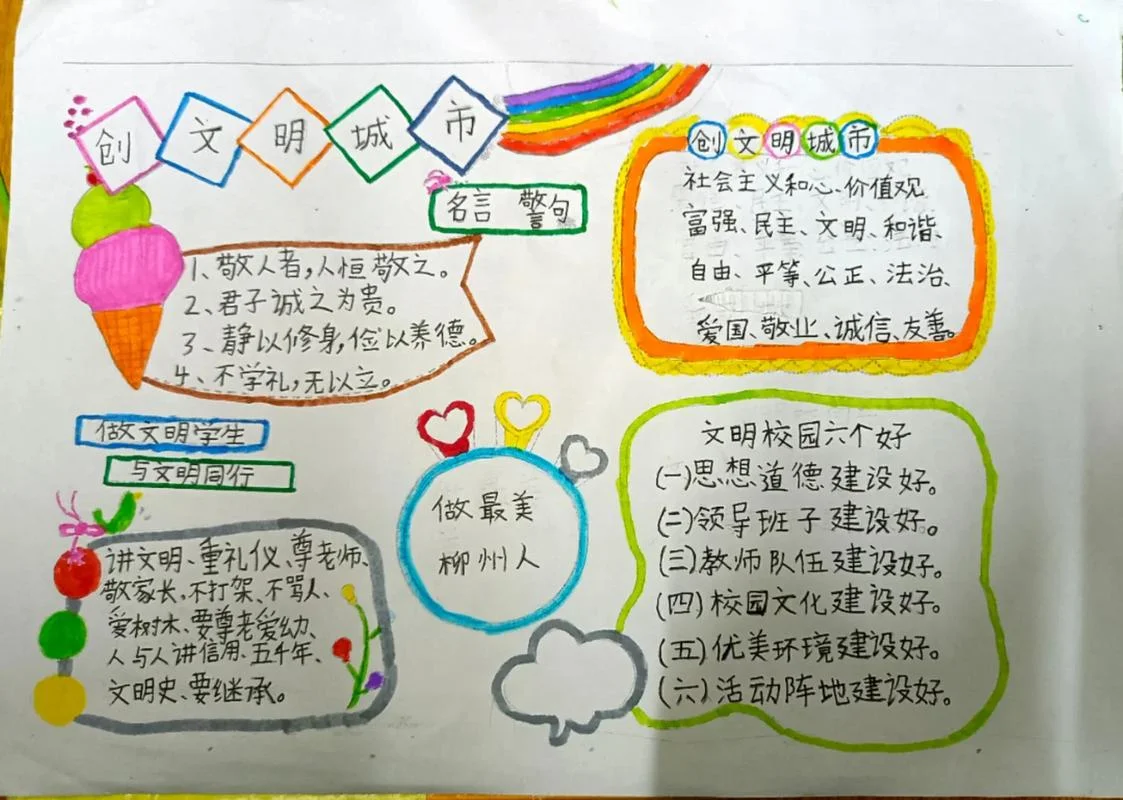 创文明城市
名言 警句
1、敬人者，人恒敬之。
2、君子诚之为贵。
3、静以修身，俭以养德。
4、不学礼，无以立。
创文明城市
社会主义和心、价值观
富强、民主、文明、和谐、
自由、平等、公正、法治、
爱国、敬业、诚信、友善。
做文明学生
与文明同行
讲文明、重礼仪、尊老师、
敬家长、不打架、不骂人、
爱树木、要尊老爱幼、
人与人讲信用、五千年、
文明史、要继承。
做最美
柳州人
文明校园六个好
(一)思想道德建设好。
(二)领导班子建设好。
(三)教师队伍建设好。
(四)校园文化建设好。
(五)优美环境建设好。
(六)活动阵地建设好。